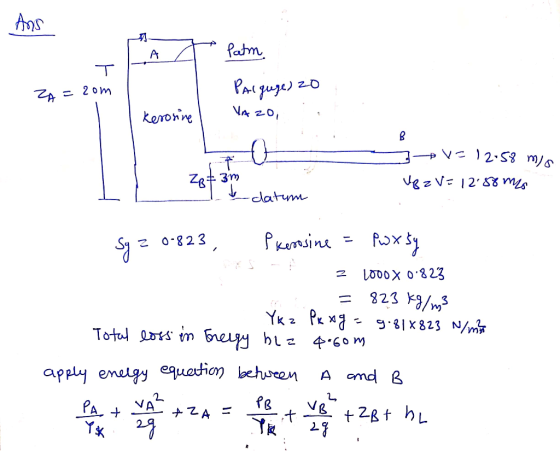 Ans
A
Patm
ZA = 20m
PA(guge) = 0
VA = 0,
kerosine
B
V = 12.58 m/s
ZB = 3m
VB = V = 12.58 m/s
datum
Sg = 0.823,
Pkerosine = Pw x Sg
= 1000 x 0.823
= 823 kg/m³
γK = PK x g = 9.81 x 823 N/m³
Total loss in Energy hL = 4.60 m
apply energy equection between A and B
PA/γK + VA²/2g + ZA = PB/γK + VB²/2g + ZB + hL